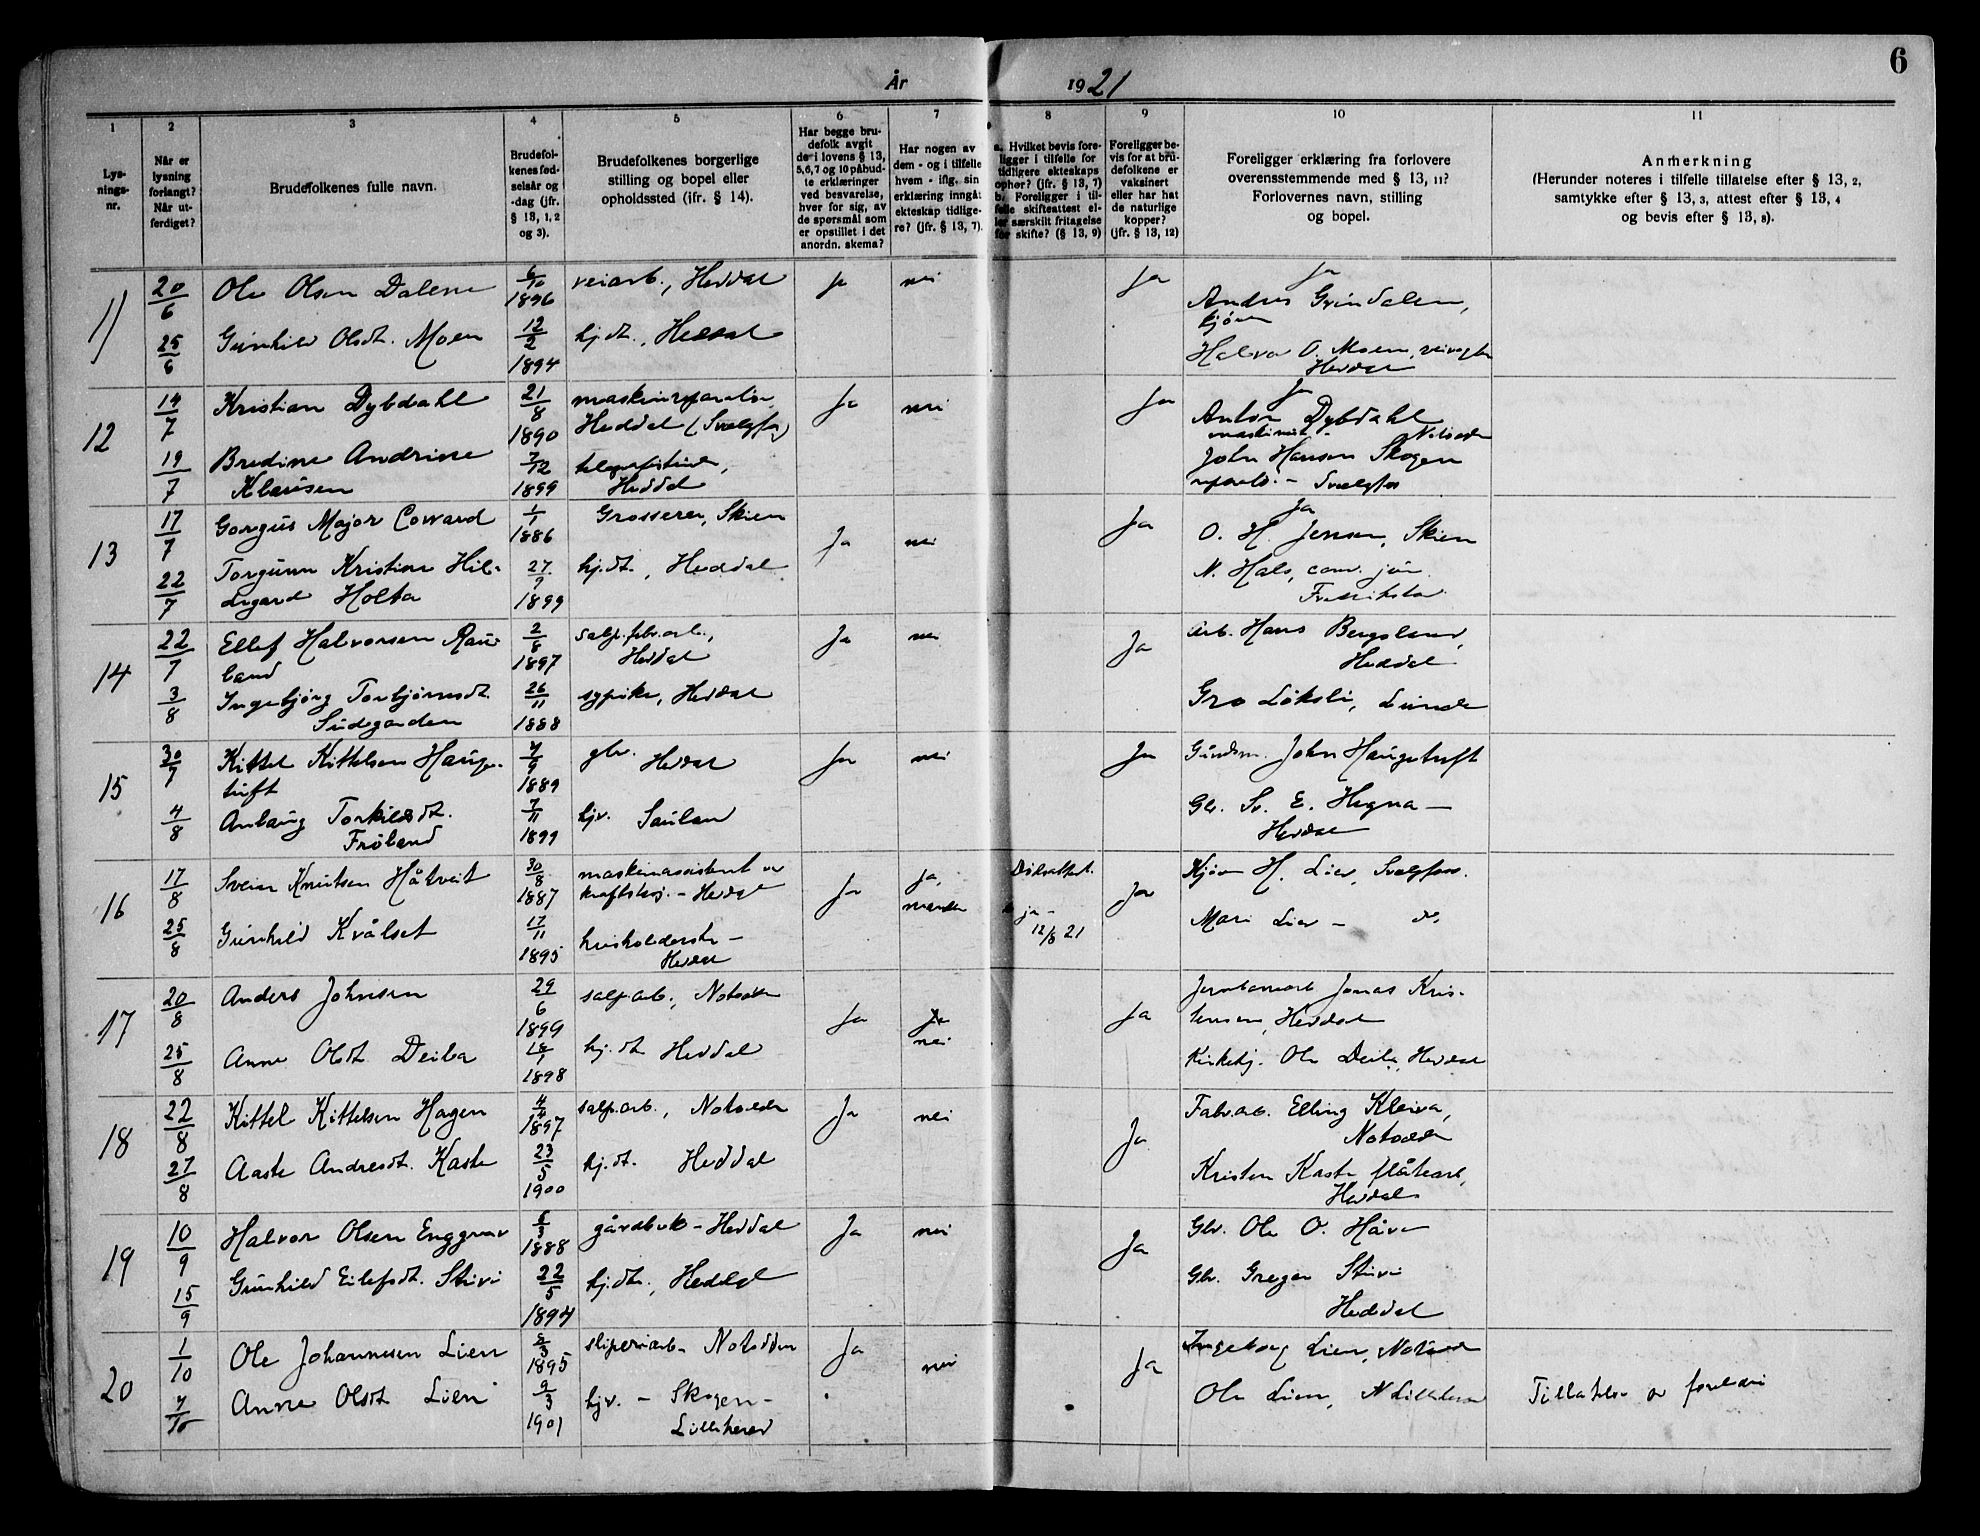 6
År 1921
1 2 3 4 5 6 7 8 9 10 11
Lys-
nings-
nr.
Når er
lysning
forlangt?
Når ut-
ferdiget?
Brudefolkenes fulle navn.
Brudefol-
kenes fød-
selsår og
-dag (jfr.
§ 13, 1, 2
og 3).
Brudefolkenes borgerlige
stilling og bopel eller
opholdssted (ifr. § 14).
Har begge bru-
defolk avgit
de i lovens § 13,
5,6,7 og 10 påbud-
te erklæringer
ved besvarelse,
hver for sig, av
de spørsmål som
er opstillet i det
anordn. skema?
Har nogen av
dem - og i tilfelle
hvem - iflg. sin
erklæring inngåt
ekteskap tidlige-
re? (jfr. § 13, 7).
a. Hvilket bevis fore-
ligger i tilfelle for
tidligere ekteskaps
ophør? (jfr. § 13, 7)
b. Foreligger i til-
felle skifteattest el-
ler særskilt fritagelse
for skifte? (§ 13, 9)
Foreligger be-
vis for at bru-
defolkene er
vaksinert
eller har hat
de naturlige
kopper?
(jfr. § 13, 12)
Foreligger erklæring fra forlovere
overensstemmende med § 13, 11?
Forlovernes navn, stilling
og bopel.
Anmerkning
(Herunder noteres i tilfelle tillatelse efter § 13, 2,
samtykke efter § 13, 3, attest efter § 13, 4
og bevis efter § 13, 8).
11) 20/6 Ole Olsen Dalene 6/10 1896 veiarb., Heddal ja nei ja ja
Andres Grindalen,
25/6 Gunhild Olsdt. Moen 12/2 1894 hj.dt., Heddal
Halvor O. Moen, veivogter
Heddal
12 14/7 Kristian Dybdahl 21/8 1890 maskinreparatør
Heddal (Svælgfos) Ja nei Ja Ja
Anton Dybdahl
maskinist - Notodden
19/7 Bredine Andrine
Klausen 7/12 1899 telegrafistinde,
Heddal
John Hansen Skogen
reparatør - Svælgfos
13 17/7 Gorgus Major Coward 1/1 1886 Grosserer, Skien Ja nei Ja Ja
O. H. Jensen, Skien
22/7 Torgunn Kristine Hil-
degard Holta 27/9 1899 hj.dt., Heddal
N. Hals, cand. jur.
Fredrikstad
14 22/7 Ellef Halvorsen Rau-
land 2/8 1897 salp.fabr.arb.,
Heddal Ja nei Ja
Arb. Hans Bergsland,
Heddal
3/8 Ingebjørg Torbjørnsdt.
Sudegarden 26/11 1888 sypike, Heddal
Gro Løksli, Lunde
15 30/7 Kittel Kittelsen Hauge-
tuft 4/9 1889 gbr. Heddal Ja nei Ja
Gaardm. John Haugetuft
4/8 Anlaug Torkildsdt.
Frøland 7/11 1899 hjv. Sauland
Gbr. Sv. E. Hegna -
Heddal
16 17/8 Svein Knutsen Håtveit 30/8 1887 maskinassistent
kraftstasj. - Heddal Ja ja,
manden Dødsattest.
ja -
12/8 21 Ja
H. Lier, Svælgfos.
25/8 Gunhild Kvålset 17/11 1895 husholderske -
Heddal
Mari Lier - do.
17 20/8 Anders Johnsen 29/6 1899 salp.arb., Notodden Ja nei Ja
Jernbanearb Jonas Kris-
tensen, Heddal
25/8 Anne Olsdt Deila 18/1 1898 hj.dt Heddal
Kirketj. Ole Deila, Heddal
18 22/8 Kittel Kittelsen Hagen 4/4 1897 salp.arb., Notodden Ja nei Ja
Fabr.arb. Elling Kleiva,
Notodden
27/8 Aaste Andresdt. Kaste 23/5 1900 hj.dt. Heddal
Kristen Kaste fløtearb,
Heddal
19 10/9 Halvor Olsen Enggrav 5/3 1888 gårdbruk - Heddal Ja nei Ja
Gbr. Ole O. Håve
15/9 Gunhild Eilefsdt. Stivi 22/5 1894 hj.dt., Heddal
Gbr. Gregar Stivi
Heddal
20 1/10 Ole Johannesen Lien 5/3 1895 sliperiarb - Notodden Ja nei Ja
Ingeborg Lien, Notodden
7/10 Anne Olsdt Lien 9/3 1901 hjv. - Skogen -
Lilleherad
Ole Lien, N Lilleherad Tillatelse av foreldri